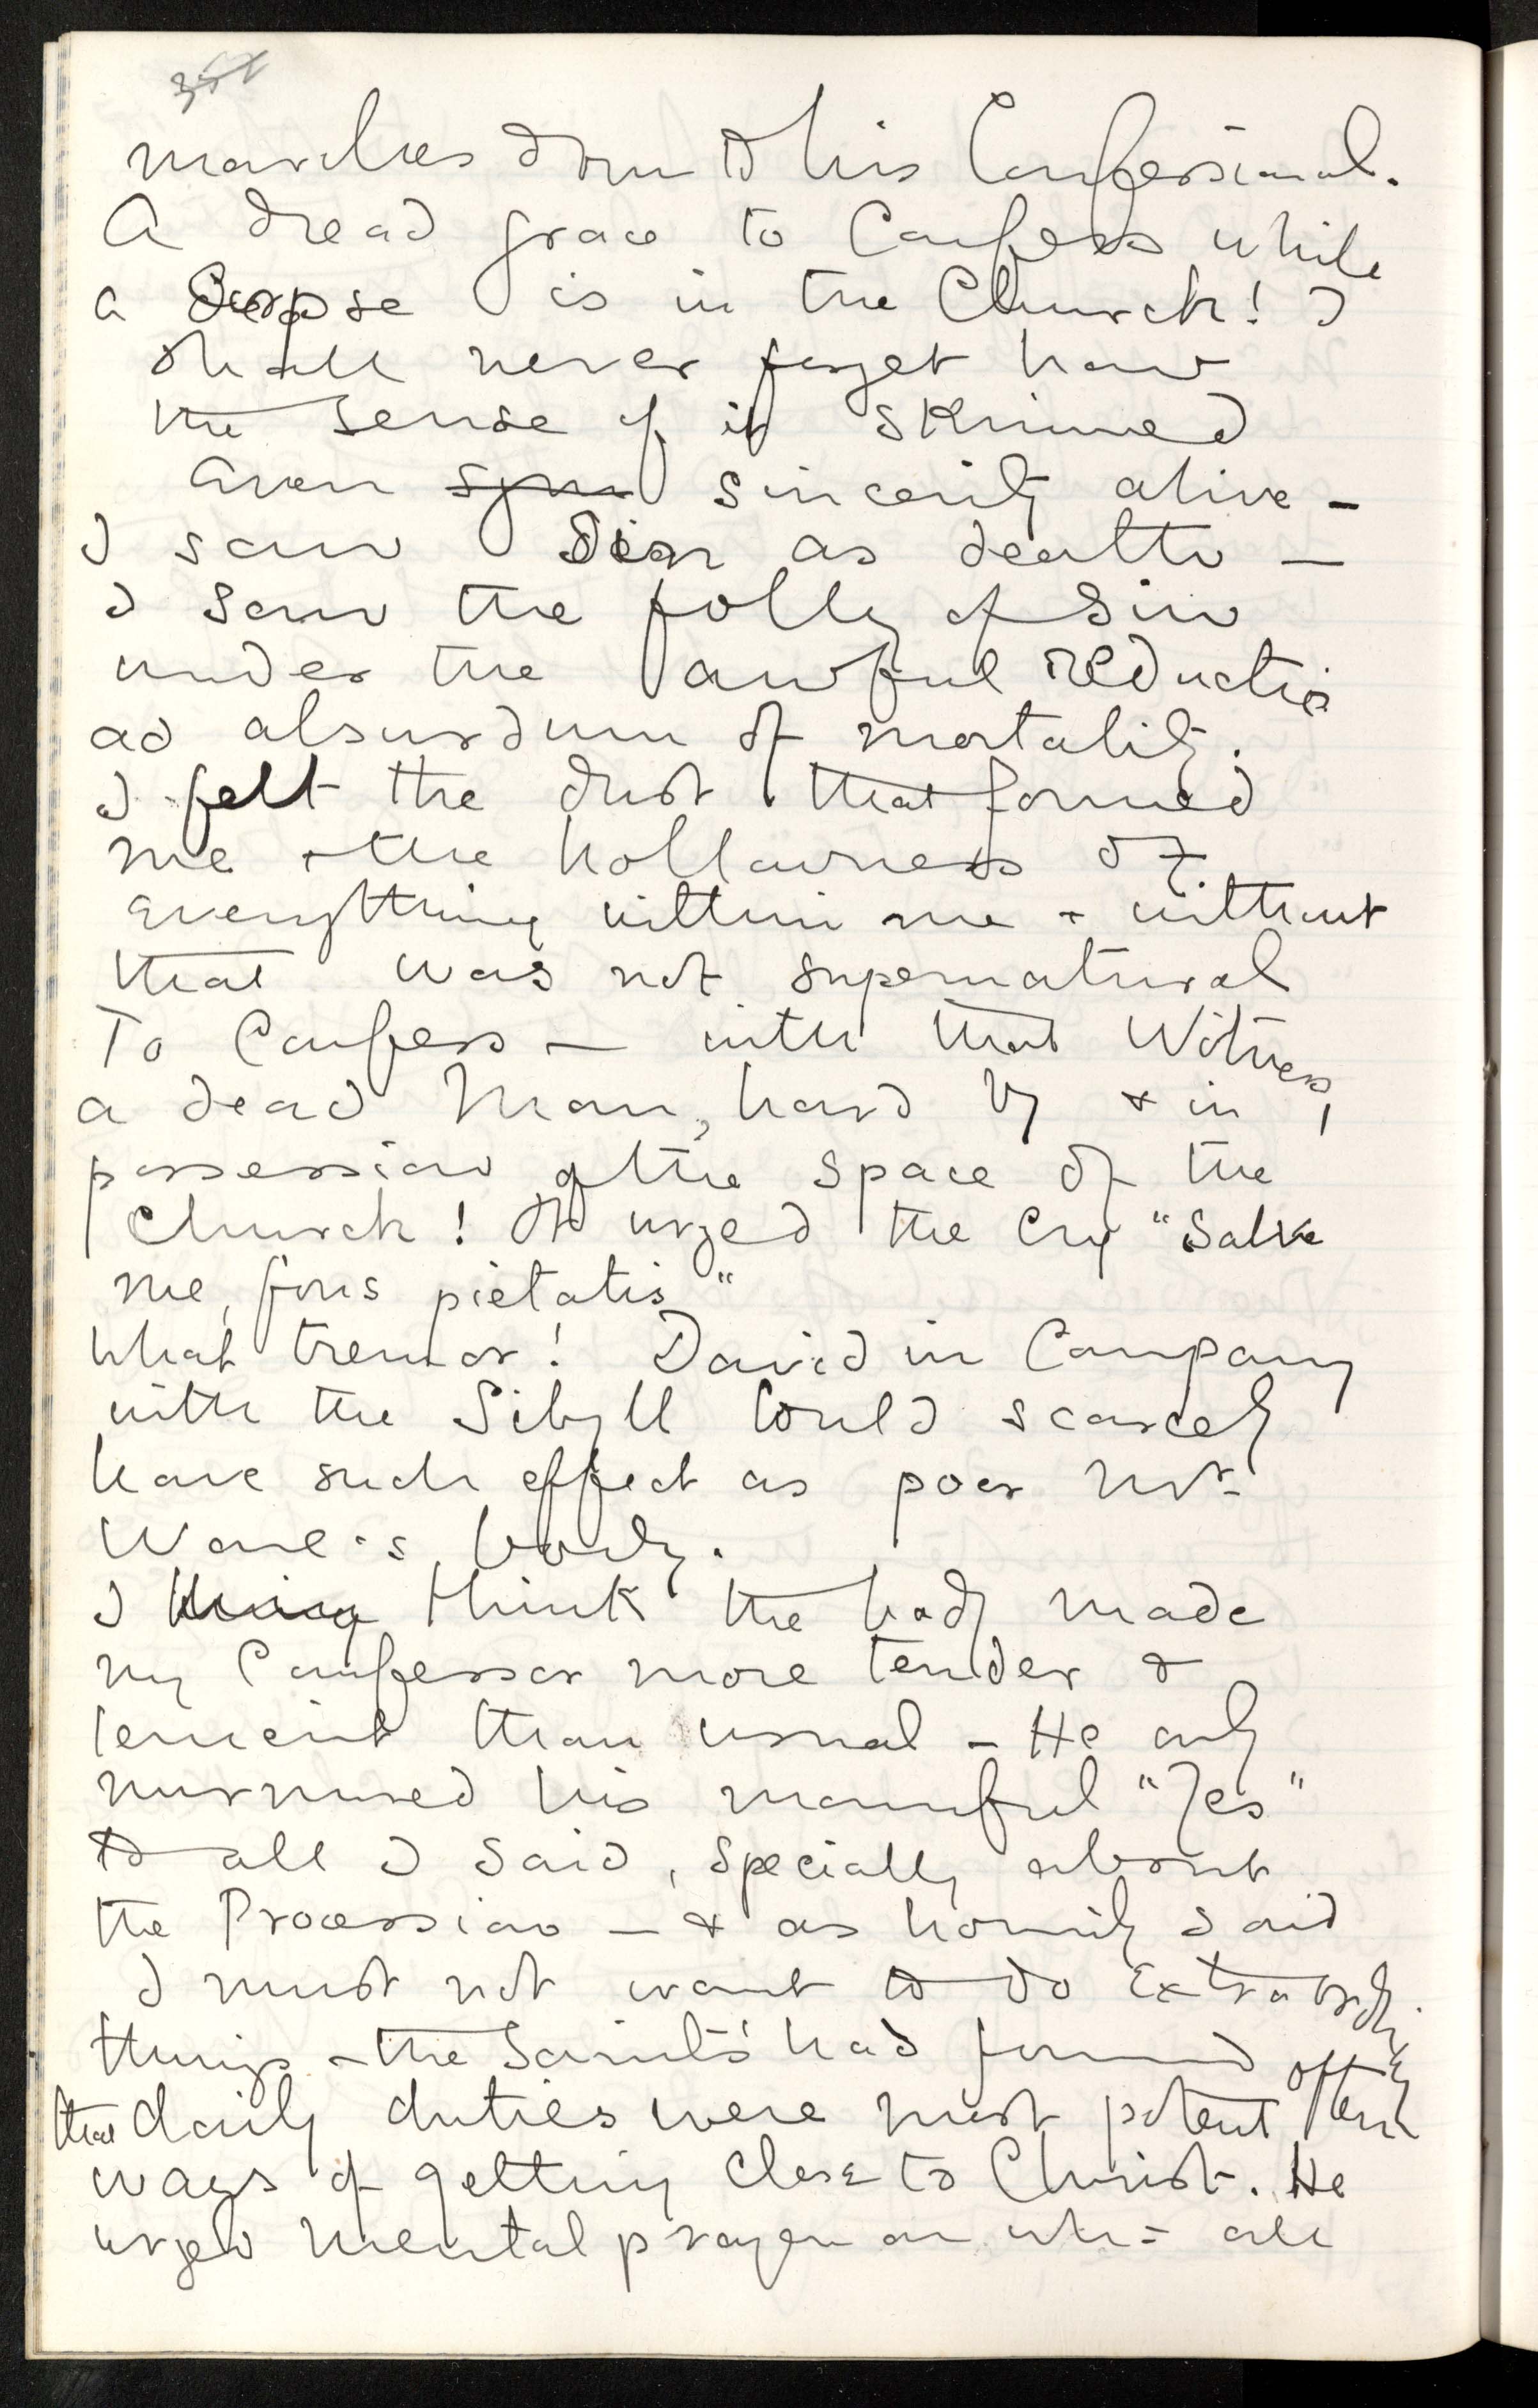 marches down to his Confessional.
A dread grace to Confess while
a Corpse is in the Church! I
shall never forget how
the sense of it skinned
even sincerity alive -
I saw Sin as death -
I saw the folly of Sin
under the awful reductio
ad absurdum of mortality.
I felt the dust that formed
me & the hollowness of
everything within me & without
that was not supernatural
To Confess - with that Witness,
a dead Man, hard by & in
possession of the space of the
Church! It urged the Cry "Salva
me, fons pietatis"
What tremor! David in Company
with the Sibyll Could scarcely
have such effect as poor Mr
Ware's body.
I think the body made
my Confessor more tender &
lenient than usual - He only
murmured his mournful "Yes"
to all I said, specially about
the Procession - & as homily said
I must not want to do Extraordy.
things - the Saints' had found often
that daily duties were most potent
ways of getting close to Christ. He
urged mental prayer on wh= all